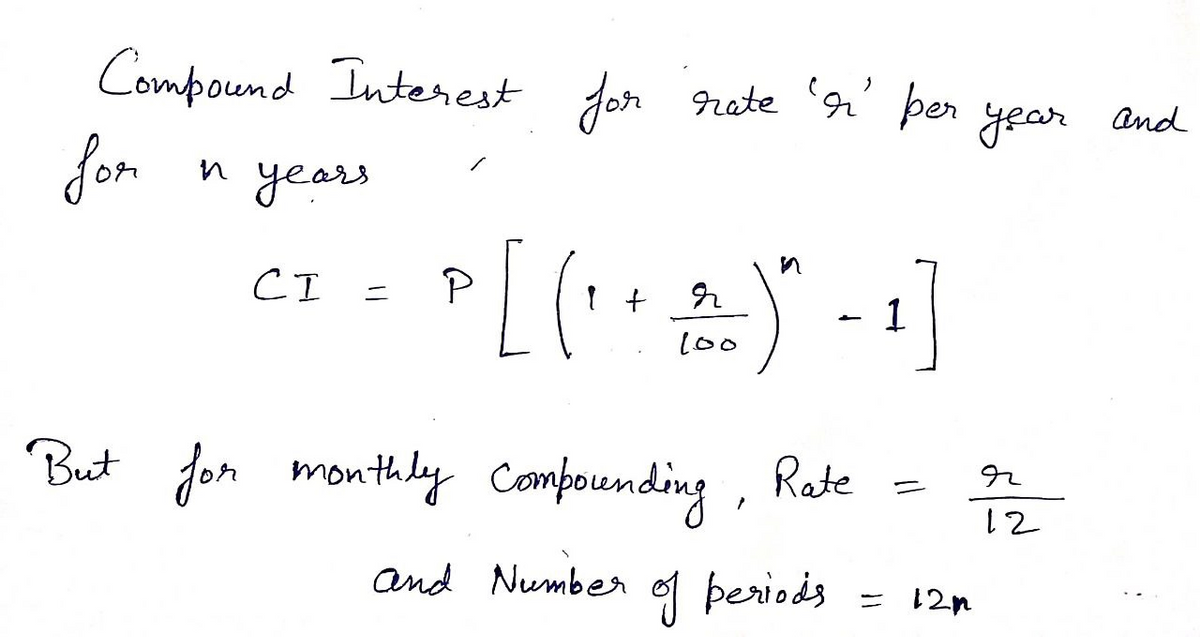 Compound Interest for rate 'r' per year and
for n years
CI = P [ ( 1 + r/100 )^n - 1 ]
But for monthly compounding, Rate = r/12
and Number of periods = 12n